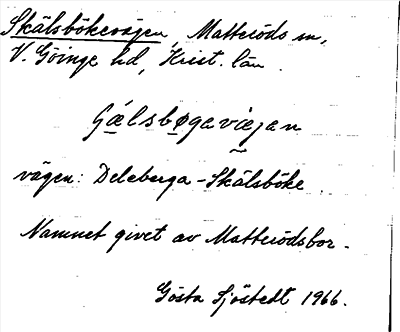 Skälsbökevägen, Matteröds sn,
V. Göinge hd, Krist. län.
Gǽlsbøgaviejan
vägen: Deleberga-Skälsböke
Namnet givet av Matterödsbor.
Gösta Sjöstedt 1966.